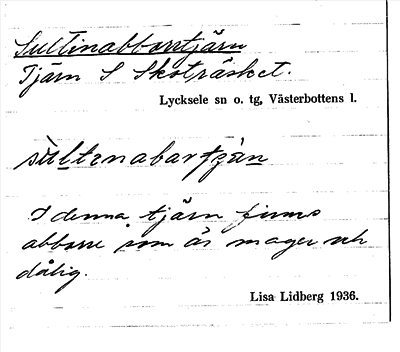 Sultinabborrtjärn
Tjärn S Skoträsket.
Lycksele sn o. tg, Västerbottens l.
sùltenabartjän
I denna tjärn finns
abborre som är mager och
dålig.
Lisa Lidberg 1936.